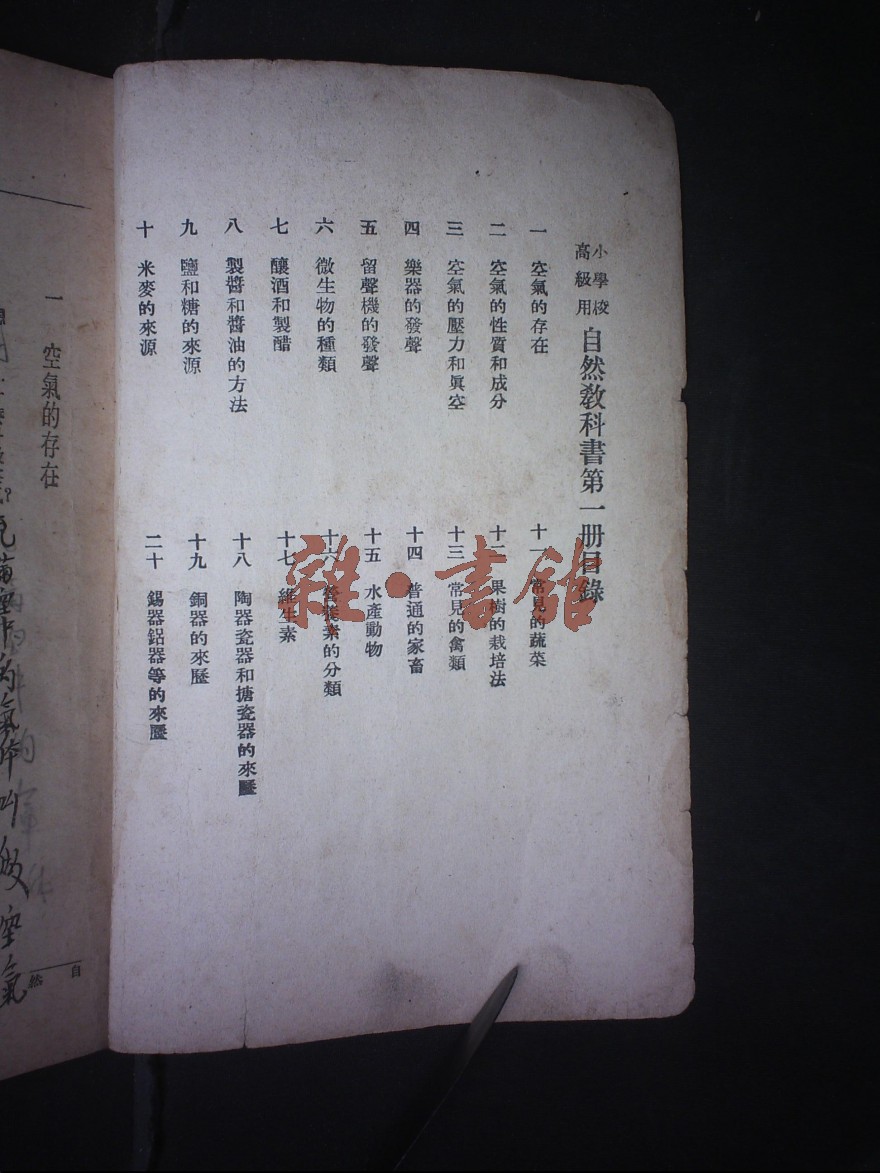 小學校
高級用
自然教科書第一册目錄
一 空氣的存在
二 空氣的性質和成分
三 空氣的壓力和眞空
四 樂器的發聲
五 留聲機的發聲
六 微生物的種類
七 釀酒和製醋
八 製醬和醬油的方法
九 鹽和糖的來源
十 米麥的來源
十一 常見的蔬菜
十二 果樹的栽培法
十三 常見的禽類
十四 普通的家畜
十五 水產動物
十六 營養素的分類
十七 維生素
十八 陶器瓷器和搪瓷器的來歷
十九 銅器的來歷
二十 錫器鋁器等的來歷
雜·書館
一 空氣的存在
中的氣体叫做空氣
自然